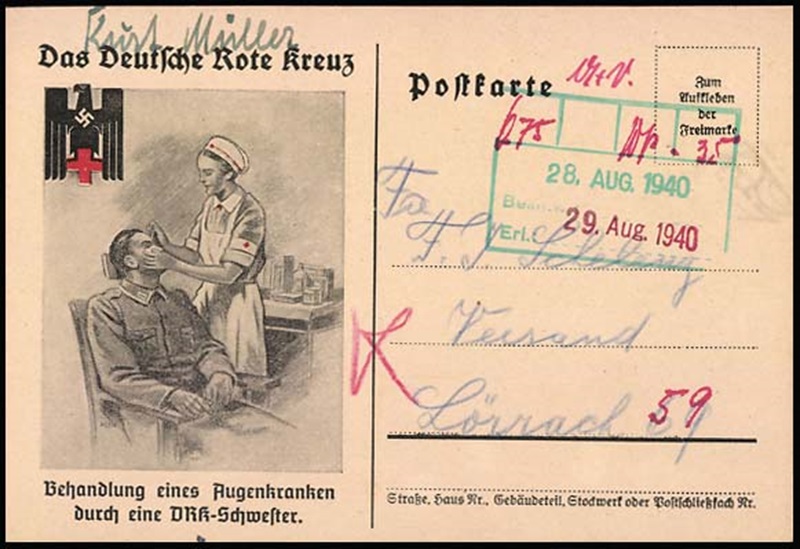 Kurt Müller
Das Deutsche Rote Kreuz
Behandlung eines Augenkranken
durch eine DRK-Schwester.
Postkarte
Zum
Aufkleben
der
Freimarke
675
35
28. AUG. 1940
29. Aug. 1940
Erl.
Fa
Versand
Lörrach
59
Straße, Haus Nr., Gebäudeteil, Stockwerk oder Postschließfach Nr.